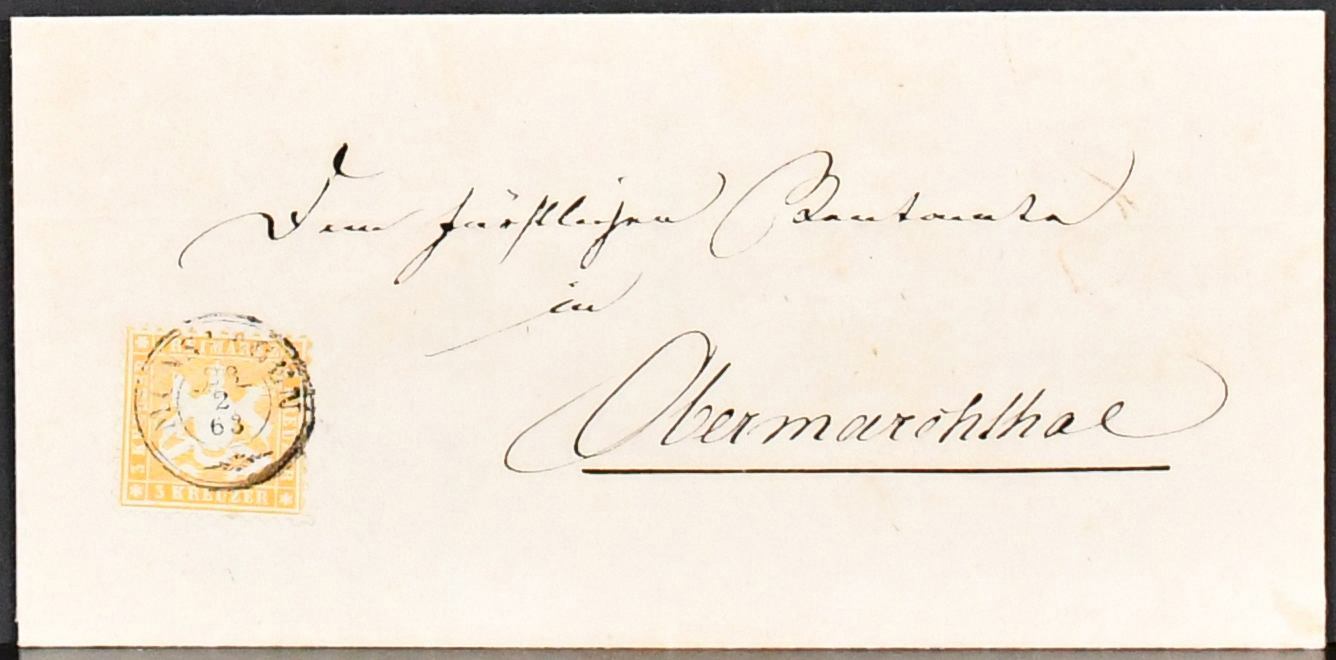 Dem fürstlichen Rentamte
in
Obermarchthal
2
63
3 KREUZER